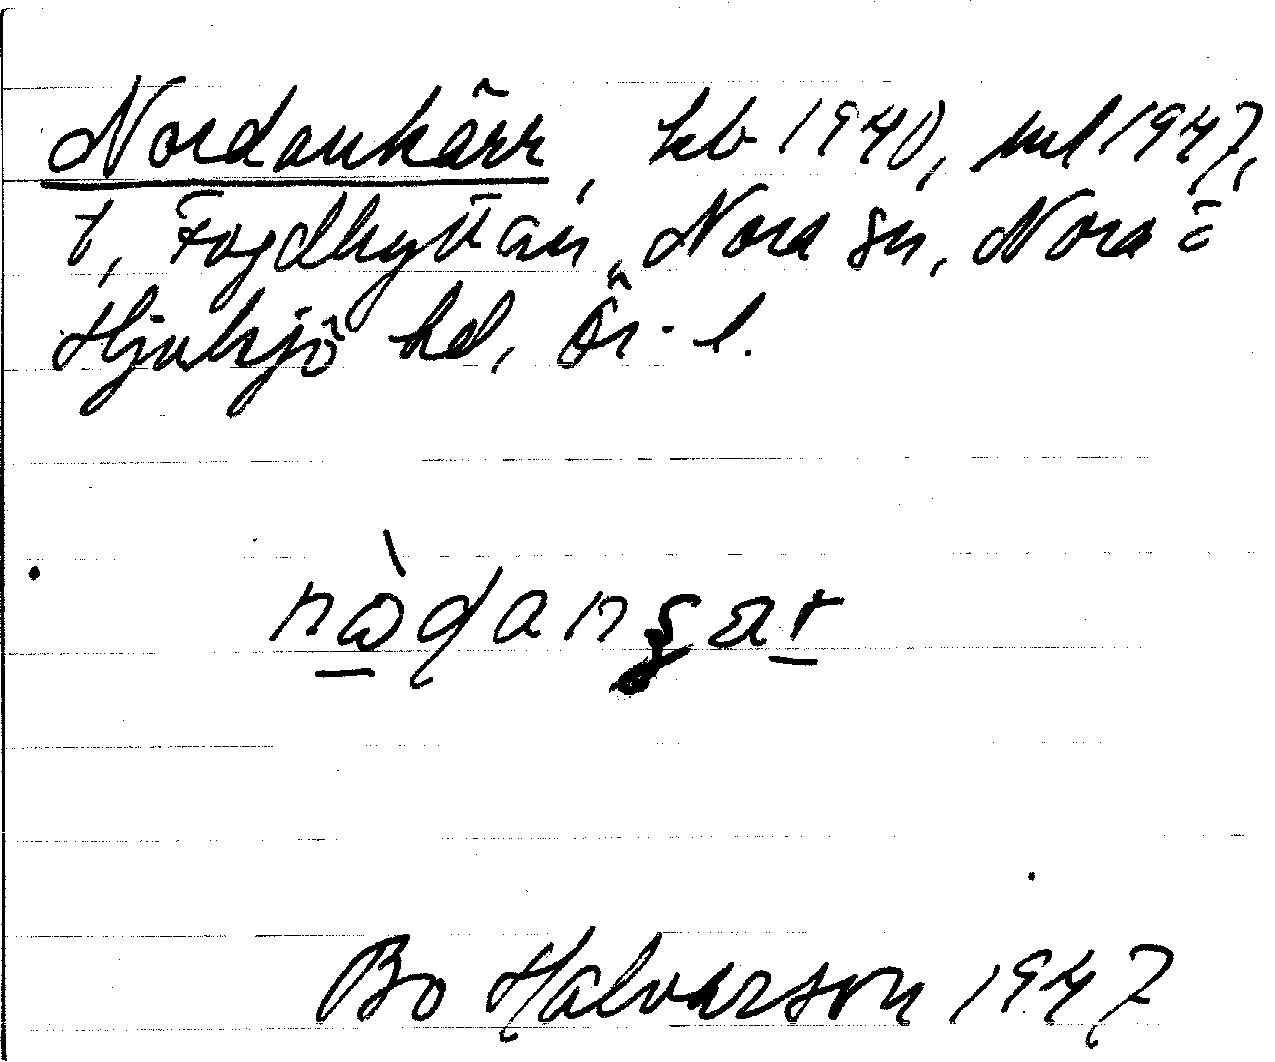 Nordankärr, kb 1940, ml 1947,
t, Fogdhyttan, Nora sn, Nora =
Hjulsjö hd, Ör. l.
Bo Halvarson 1947